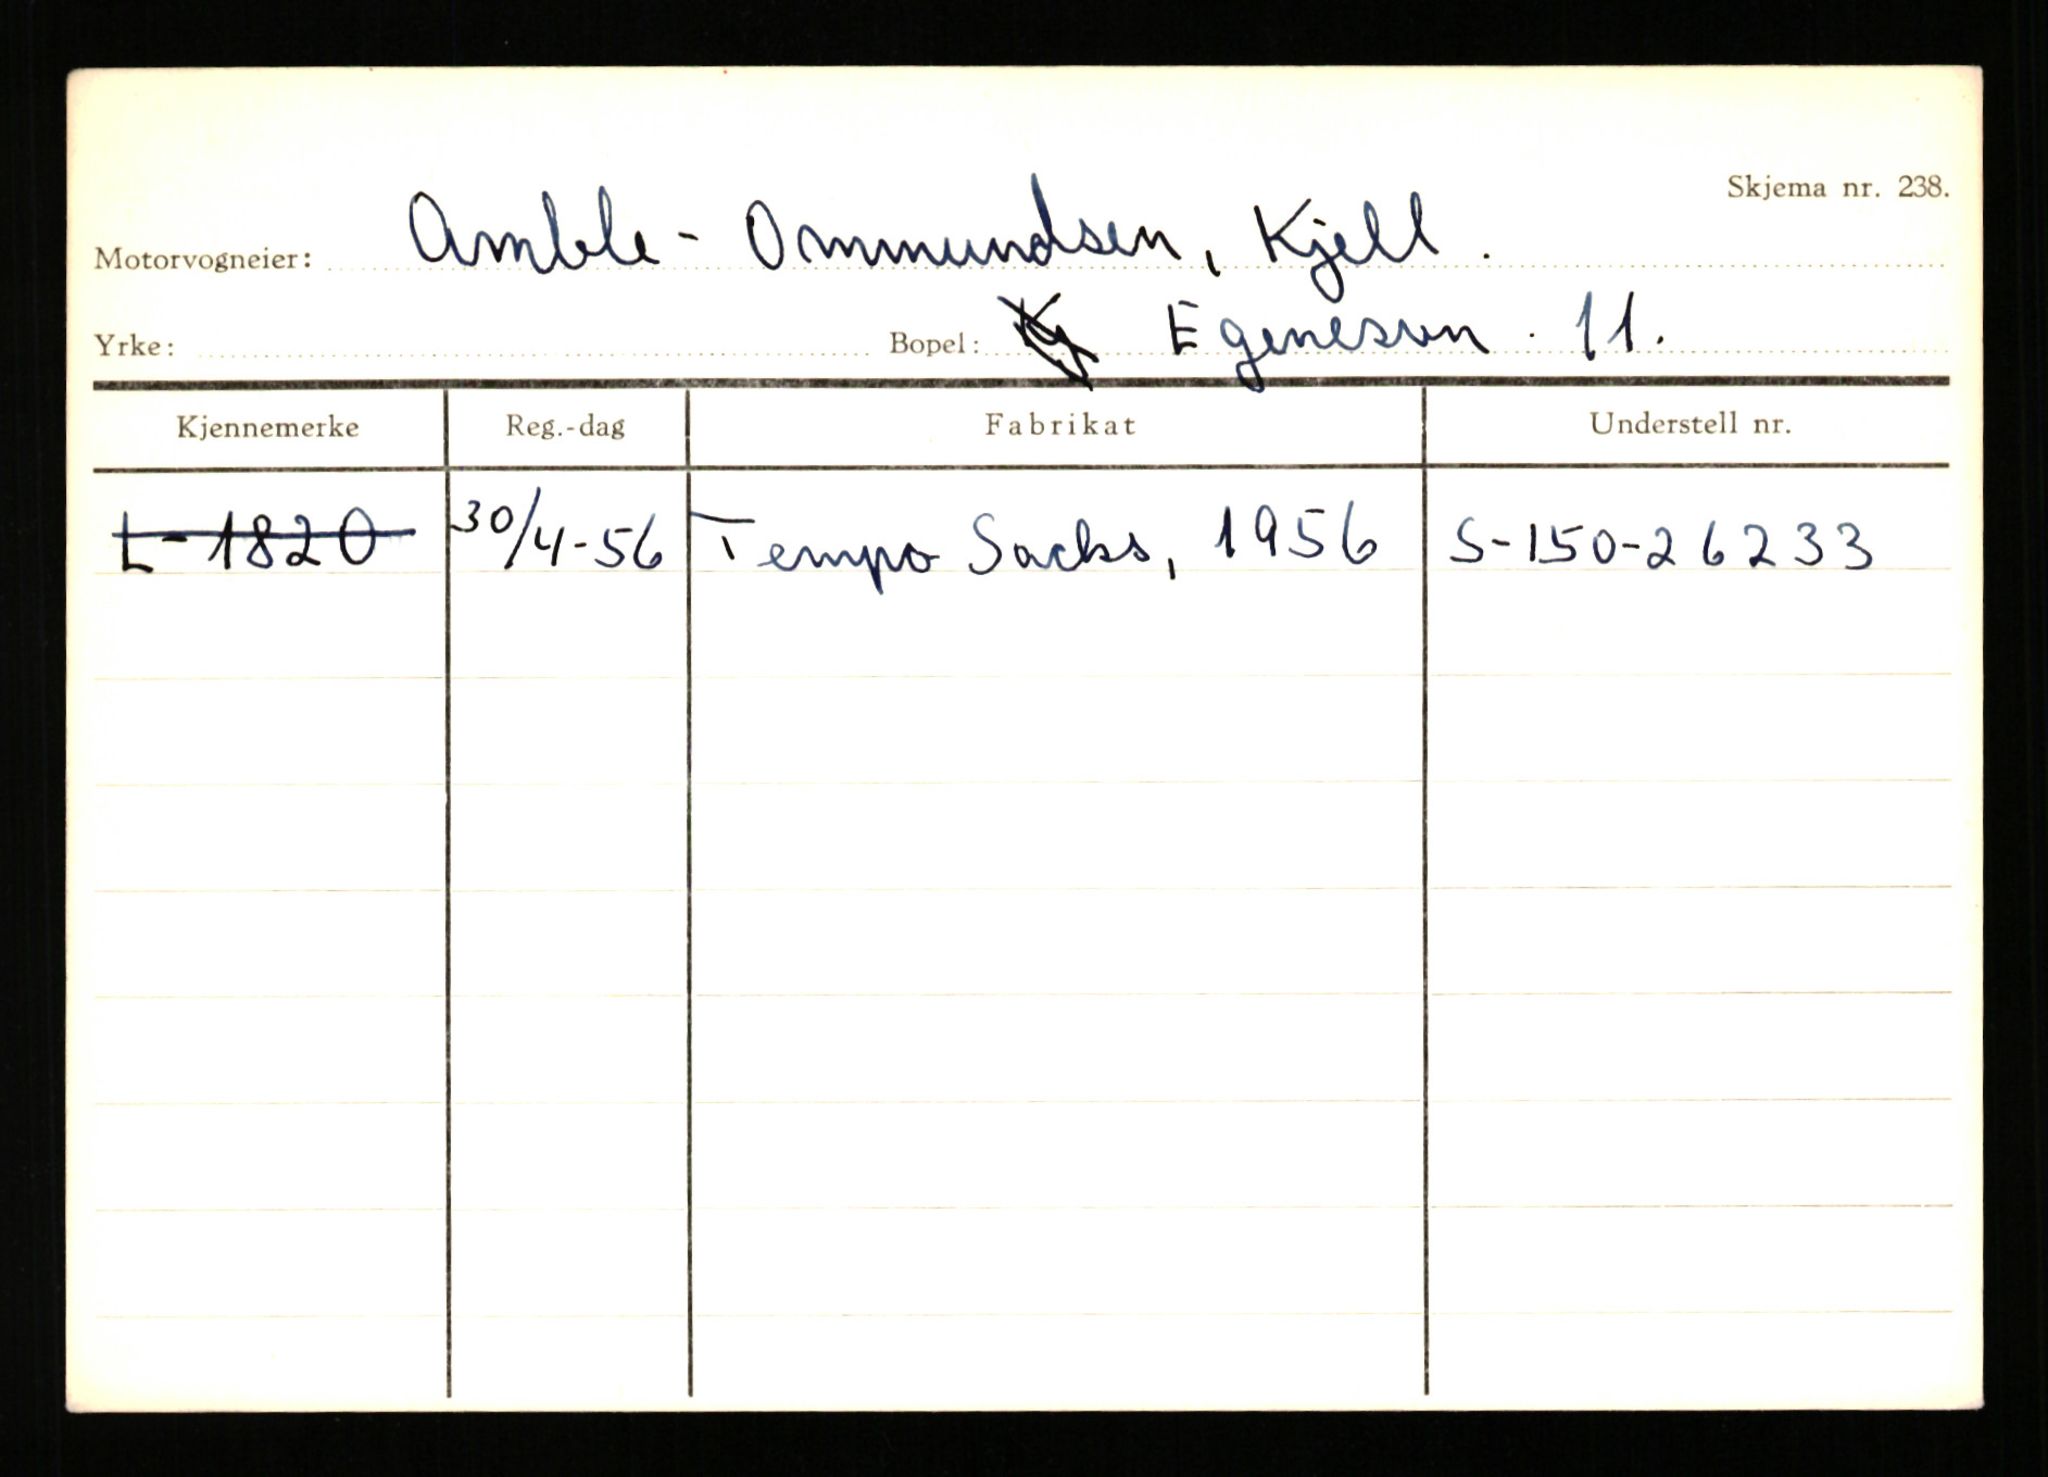 Skjema nr. 238.
Motorvogneier: Amble - Ommundsen, Kjell.
Yrke: Bopel: Egenesvn. 11.
Kjennemerke Reg.-dag Fabrikat Understell nr.
L-1820 30/4-56 Tempo Sacks, 1956 S-150-26233